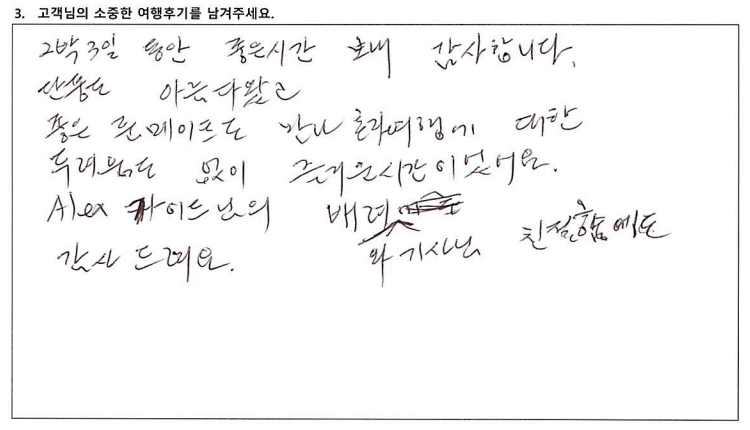 3. 고객님의 소중한 여행후기를 남겨주세요.
2박3일 동안 좋은시간 보내 감사합니다.
단풍도 아름다웠고
좋은 룸메이트도 만나 혼자여행에 대한
두려움도 없이 즐거운시간이었어요.
Alex 가이드님의 배려와 기사님 친절함에도
감사 드려요.